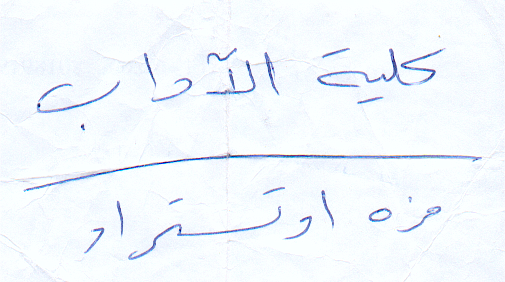 كلية الآداب
مزه اوتستراد